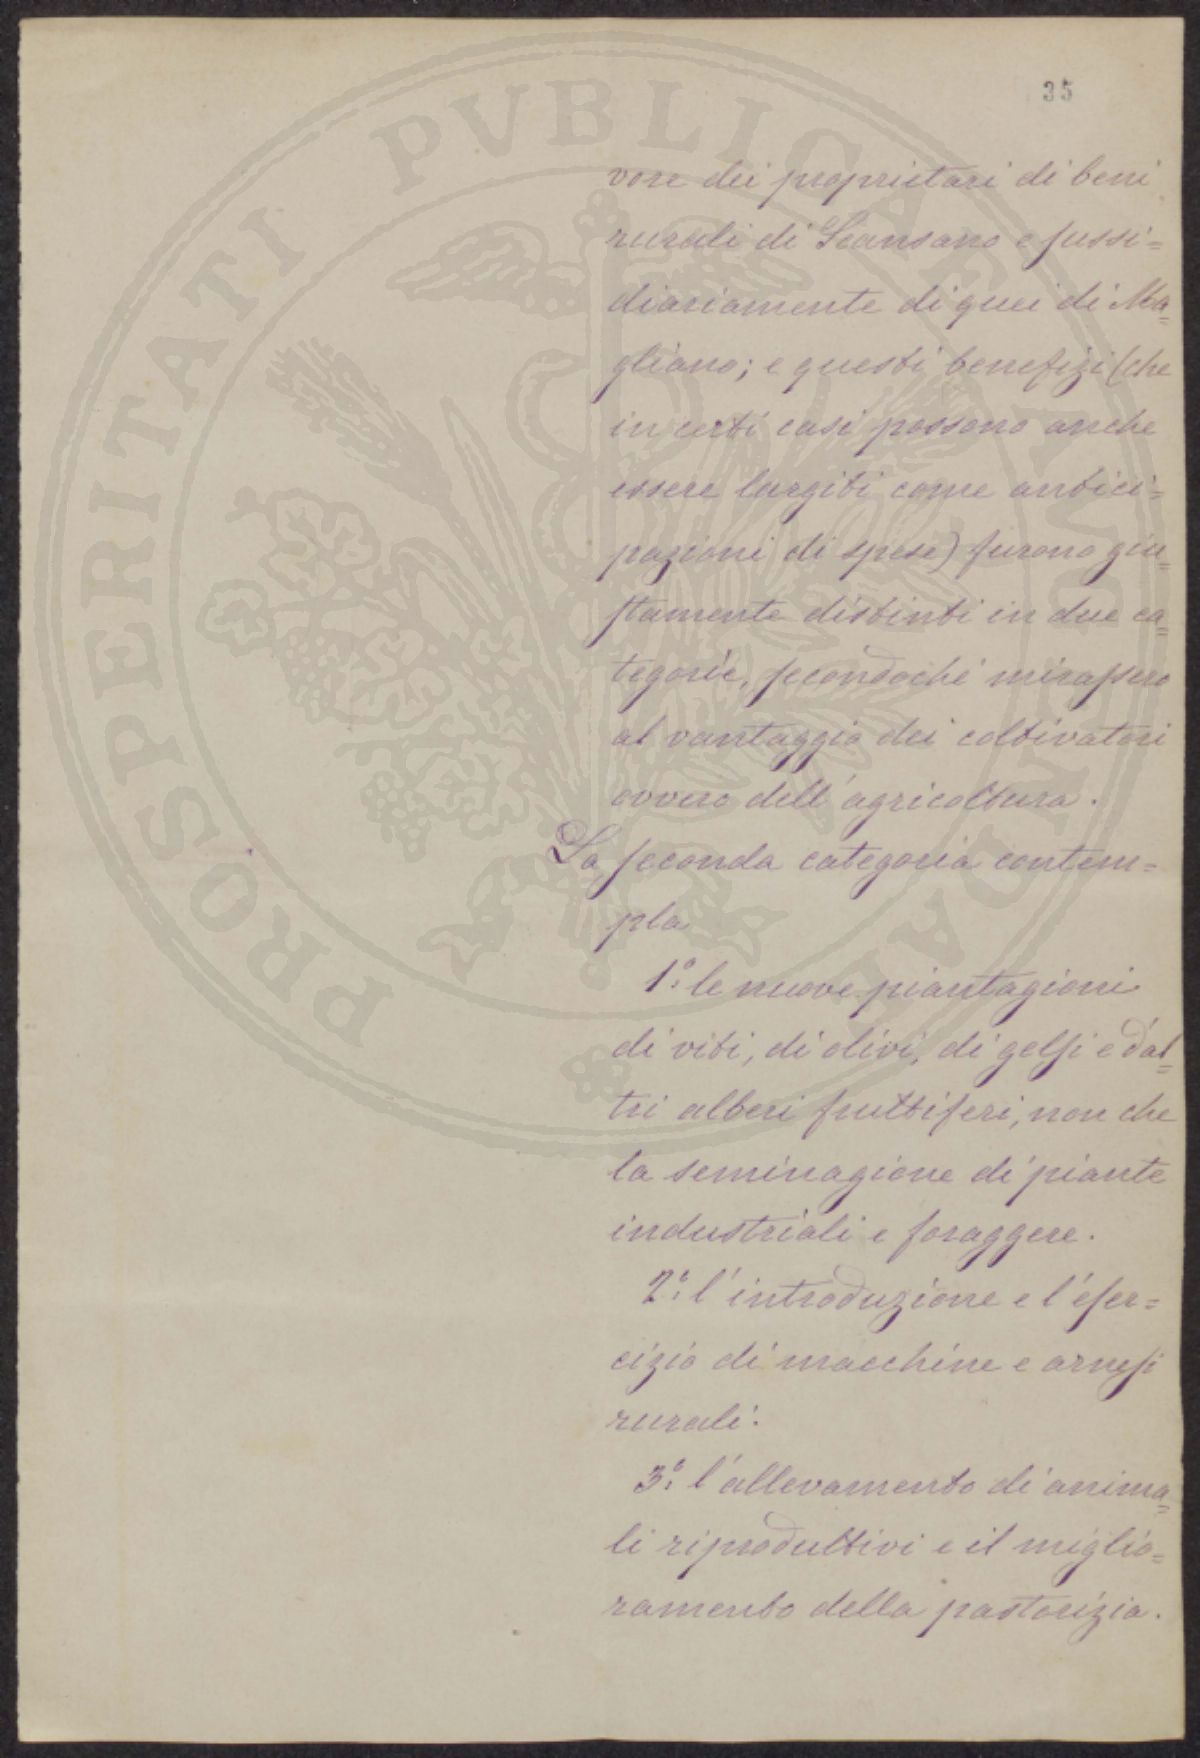 35
vore dei proprietari di beni
rurali di Scansano e sussi=
diariamente di quei di Ma=
gliano; e questi benefizi (che
in certi casi possono anche
essere largiti come antici=
pazioni di spese) furono giu=
stamente distinti in due ca=
tegorie, secondochè mirassero
al vantaggio dei coltivatori
ovvero dell'agricoltura.
La seconda categoria contem=
pla
1.° le nuove piantagioni
di viti, di olivi, di gelsi e d'al=
tri alberi fruttiferi, non che
la seminagione di piante
industriali e foraggere.
2.° l'introduzione e l'eser=
cizio di macchine e arnesi
rurali.
3.° l'allevamento di anima=
li riproduttivi e il miglio=
ramento della pastorizia.
PROSPERITATI PVBLICAE AVGENDAE